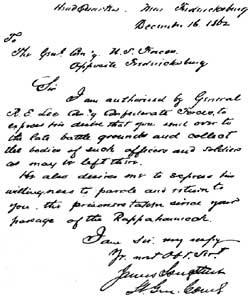 Head Quarters Near Fredericksburg
December 16, 1862
To
The Genl Com'g U.S. Forces
Opposite Fredericksburg
Sir
I am authorised by General
R. E. Lee Com'g Confederate Forces, to
express his desire that you send over to
the late battle grounds and collect
the bodies of such officers and soldiers
as may be left there.
He also desires me to express his
willingness to parole and return to
you the prisoners taken since your
passage of the Rappahannock.
I am Sir, very resply
Yr. most Obt. Servt
James Longstreet
Lt Gen. Comd